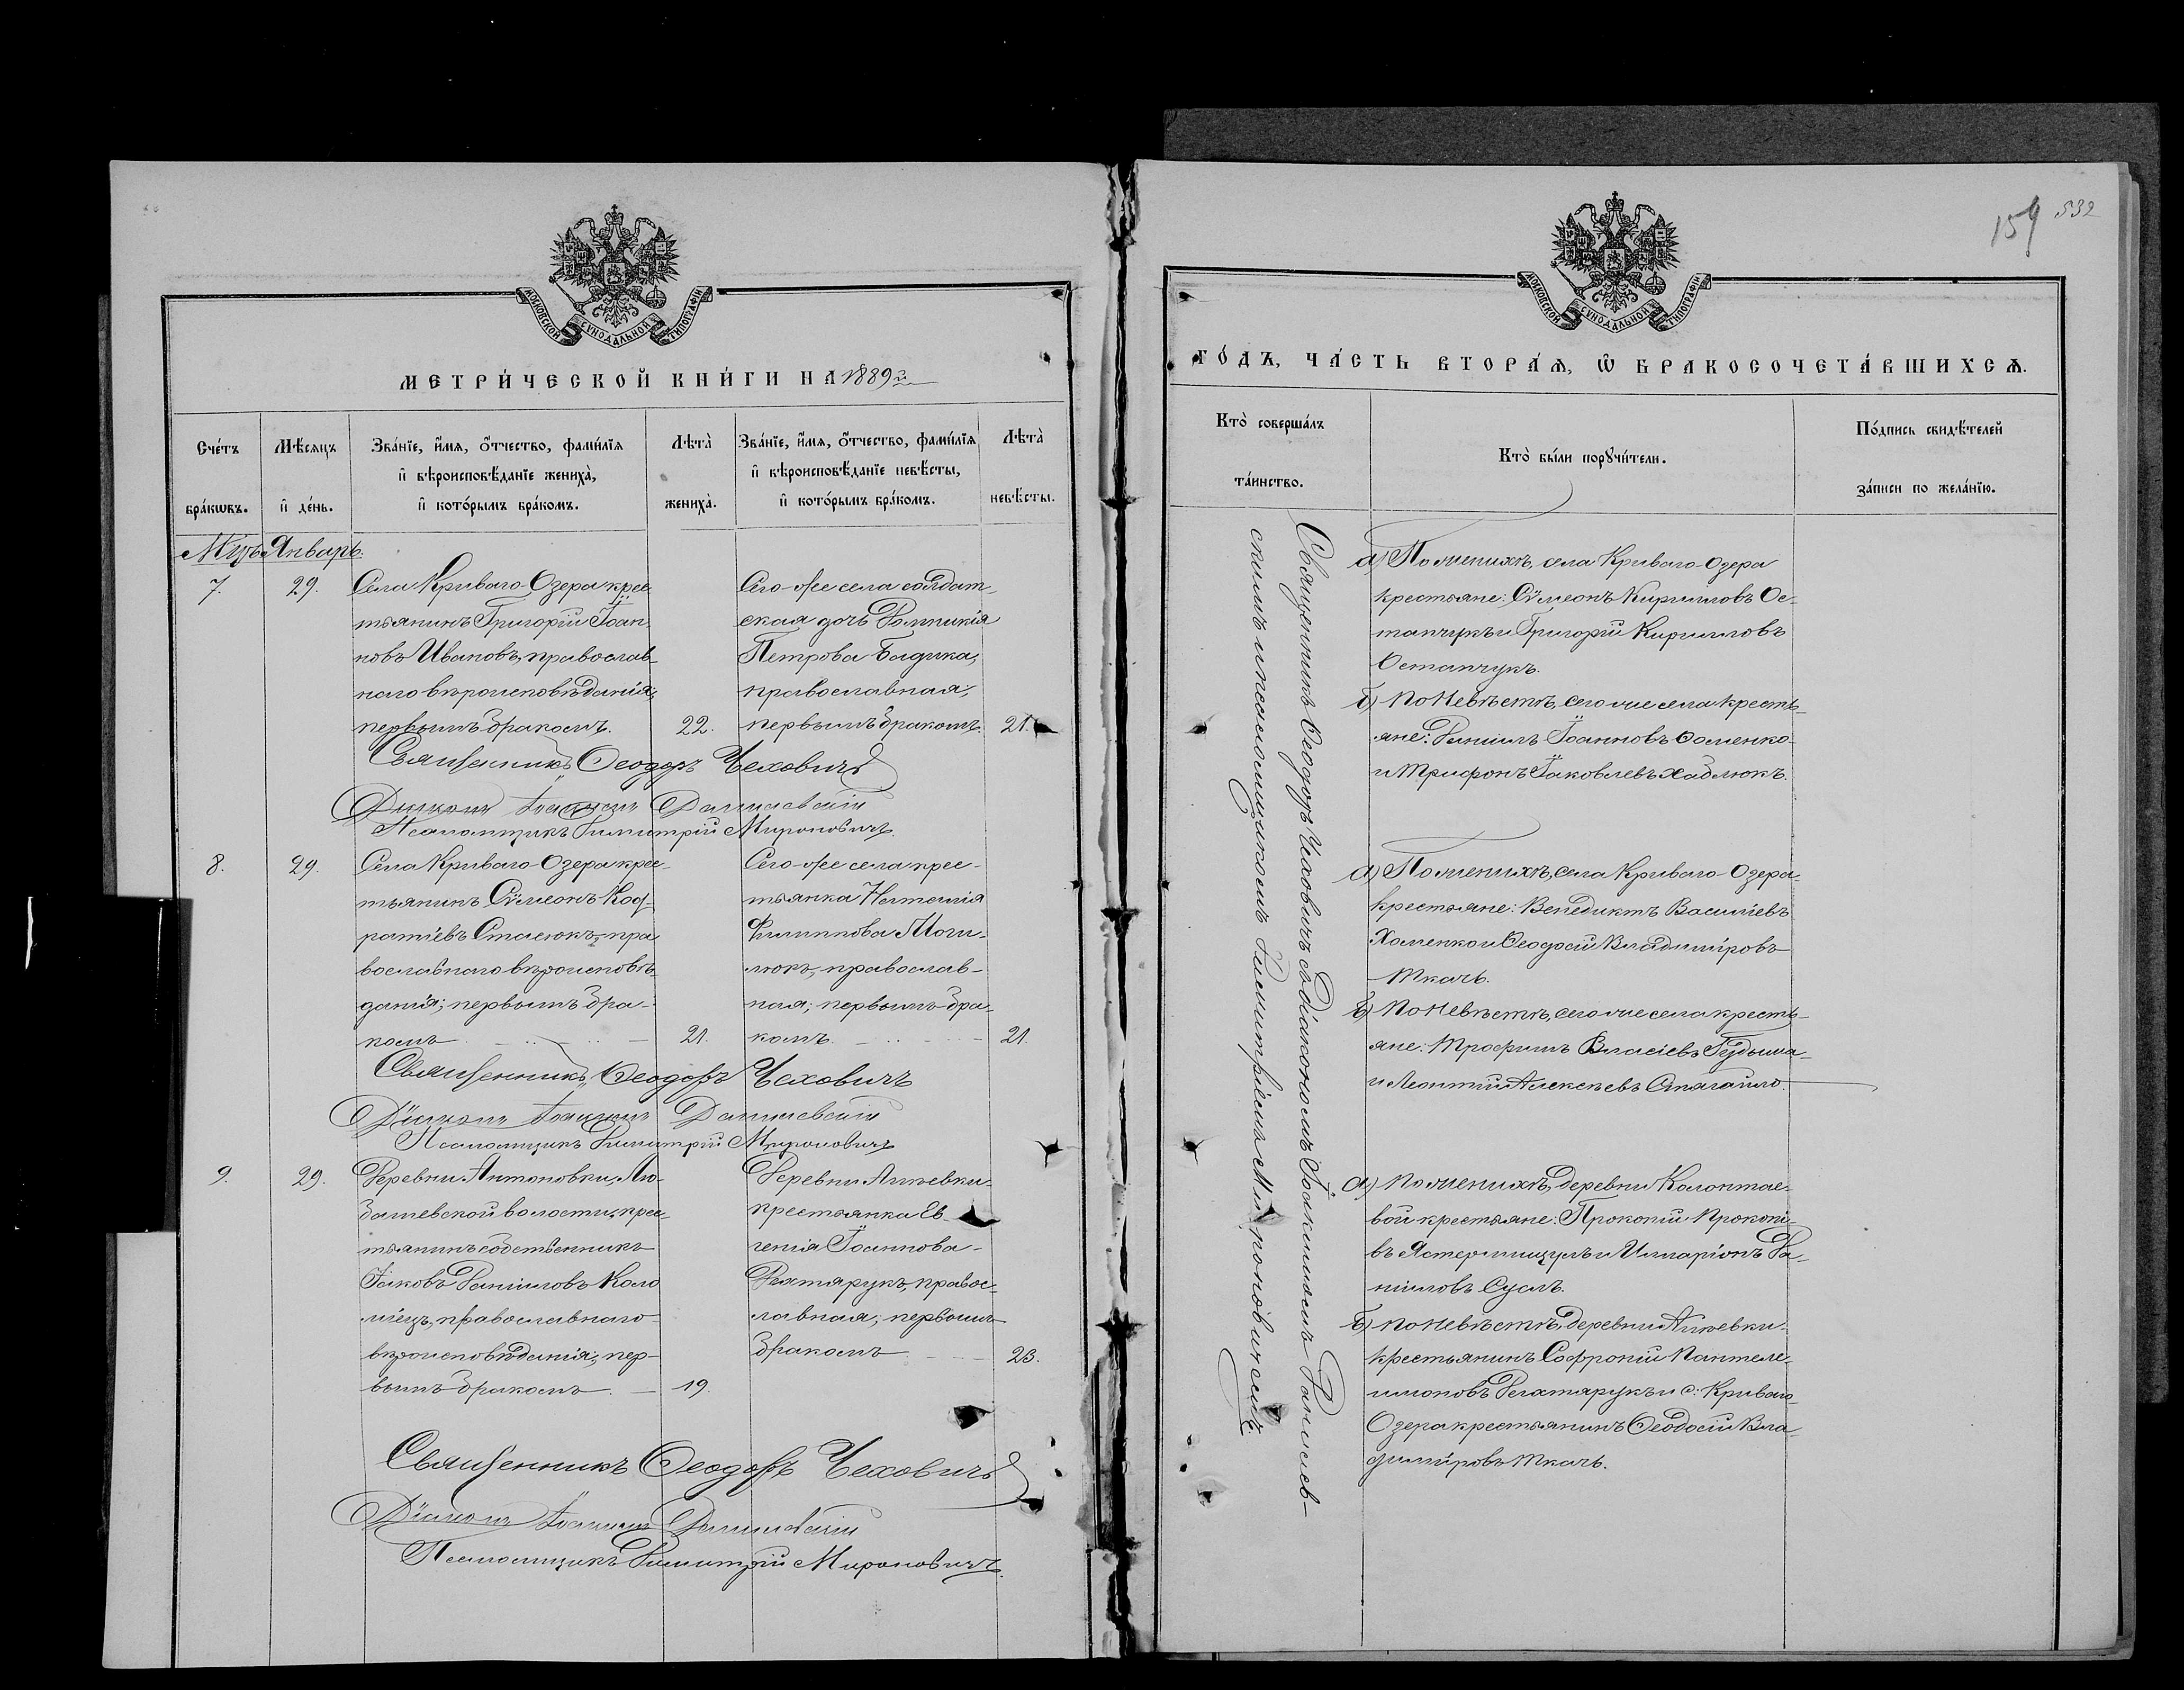 МОСКОВСКОЙ СѴНОДАЛЬНОЙ ТИПОГРАФІИ
МЕТРИ́ЧЕСКОЙ КНИ́ГИ НА 1889 г.
Сче́тъ бра́кѡвъ.
Мѣ́сяцъ и҆ де́нь.
Зва́нїе, и҆́мѧ, ѻ҆́тчество, фами́лїѧ
и҆ вѣроисповѣ́данїе жениха̀,
и҆ кото́рымъ бра́комъ.
Лѣта̀ жениха̀.
Зва́нїе, и҆́мѧ, ѻ҆́тчество, фами́лїѧ
и҆ вѣроисповѣ́данїе невѣ́сты,
и҆ кото́рымъ бра́комъ.
Лѣта̀ невѣ́сты.
Мцъ Январь.
7.
29.
Села Криваго-Озера крес
тьянинъ Григорій Іоан
новъ Ивановъ, православ-
наго вѣроисповѣданія;
первымъ бракомъ.
22.
Сего-же села солдат-
ская дочь
Петрова
православная;
первымъ бракомъ.
21.
Священникъ Ѳеодоръ Чеховичъ
Діаконъ Іоакимъ Данилевскій
Псаломщикъ Димитрій Мироновичъ.
8.
29.
Села Криваго-Озера крес-
тьянинъ Сѵмеонъ Код-
ратіевъ Стасюкъ, пра
вославнаго вѣроисповѣ-
данія; первымъ бра-
комъ
21.
Сего-же села крес-
тьянка
Филиппова Моги-
люкъ, православ-
ная; первымъ бра-
комъ.
21.
Священникъ Ѳеодоръ Чеховичъ
Діаконъ Іоакимъ Данилевскій
Псаломщикъ Димитрій Мироновичъ
9.
29.
Деревни Антоновки, Лю-
башевской волости, крес-
тьянинъ собственникъ
Іаковъ Даніиловъ Коло
міецъ, православнаго
вѣроисповѣданія; пер-
вымъ бракомъ.
19.
Деревни
крестьянка Ев-
генія Іоаннова
Дехтярукъ, правос-
лавная; первымъ
бракомъ
23.
Священникъ Ѳеодоръ Чеховичъ
Діаконъ Іоакимъ Данилевскій
Псаломщикъ Димитрій Мироновичъ.
159 532
МОСКОВСКОЙ СѴНОДАЛЬНОЙ ТИПОГРАФІИ
ГО́ДЪ, ЧА́СТЬ ВТОРА́Ѧ, Ѡ҆ БРАКОСОЧЕТА́ВШИХСѦ.
Кто̀ соверша́лъ та́инство.
Кто̀ бы́ли порꙋчи́тели.
По́дпись свидѣ́телей за́писи по жела́нїю.
Священникъ Ѳеодоръ Чеховичъ съ діакономъ Іоакимомъ Данилев-
скимъ и псаломщикомъ Димитріемъ Мироновичемъ.
а) По женихѣ, села Криваго-Озера
крестьяне: Сѵмеонъ Кирилловъ Ос-
тапчукъ и Григорій Кирилловъ
Остапчукъ.
б) по невѣстѣ, сего же села кресть-
яне: Даніилъ Іоанновъ Фоменко
и Трифонъ Іаковлевъ Хаблюкъ.
а) По женихѣ, села Криваго-Озера
крестьяне: Венедиктъ Васильевъ
Хоменко и Ѳеодосій Владиміровъ
Ткачъ.
б) По невѣстѣ, сего же села кресть-
яне: Трофимъ Власіевъ Гудыма
и Леонтій Алексѣевъ Стягайло.
а) по женихѣ, деревни Колонтае-
вой крестьяне: Прокопій Прокопі-
въ и Илларіонъ Да-
ніиловъ
б) по невѣстѣ, деревни
крестьянинъ Софроній Пантеле-
имоновъ Дехтярукъ и с: Криваго
Озера крестьянинъ Ѳеодосій Вла-
диміровъ Ткачъ.